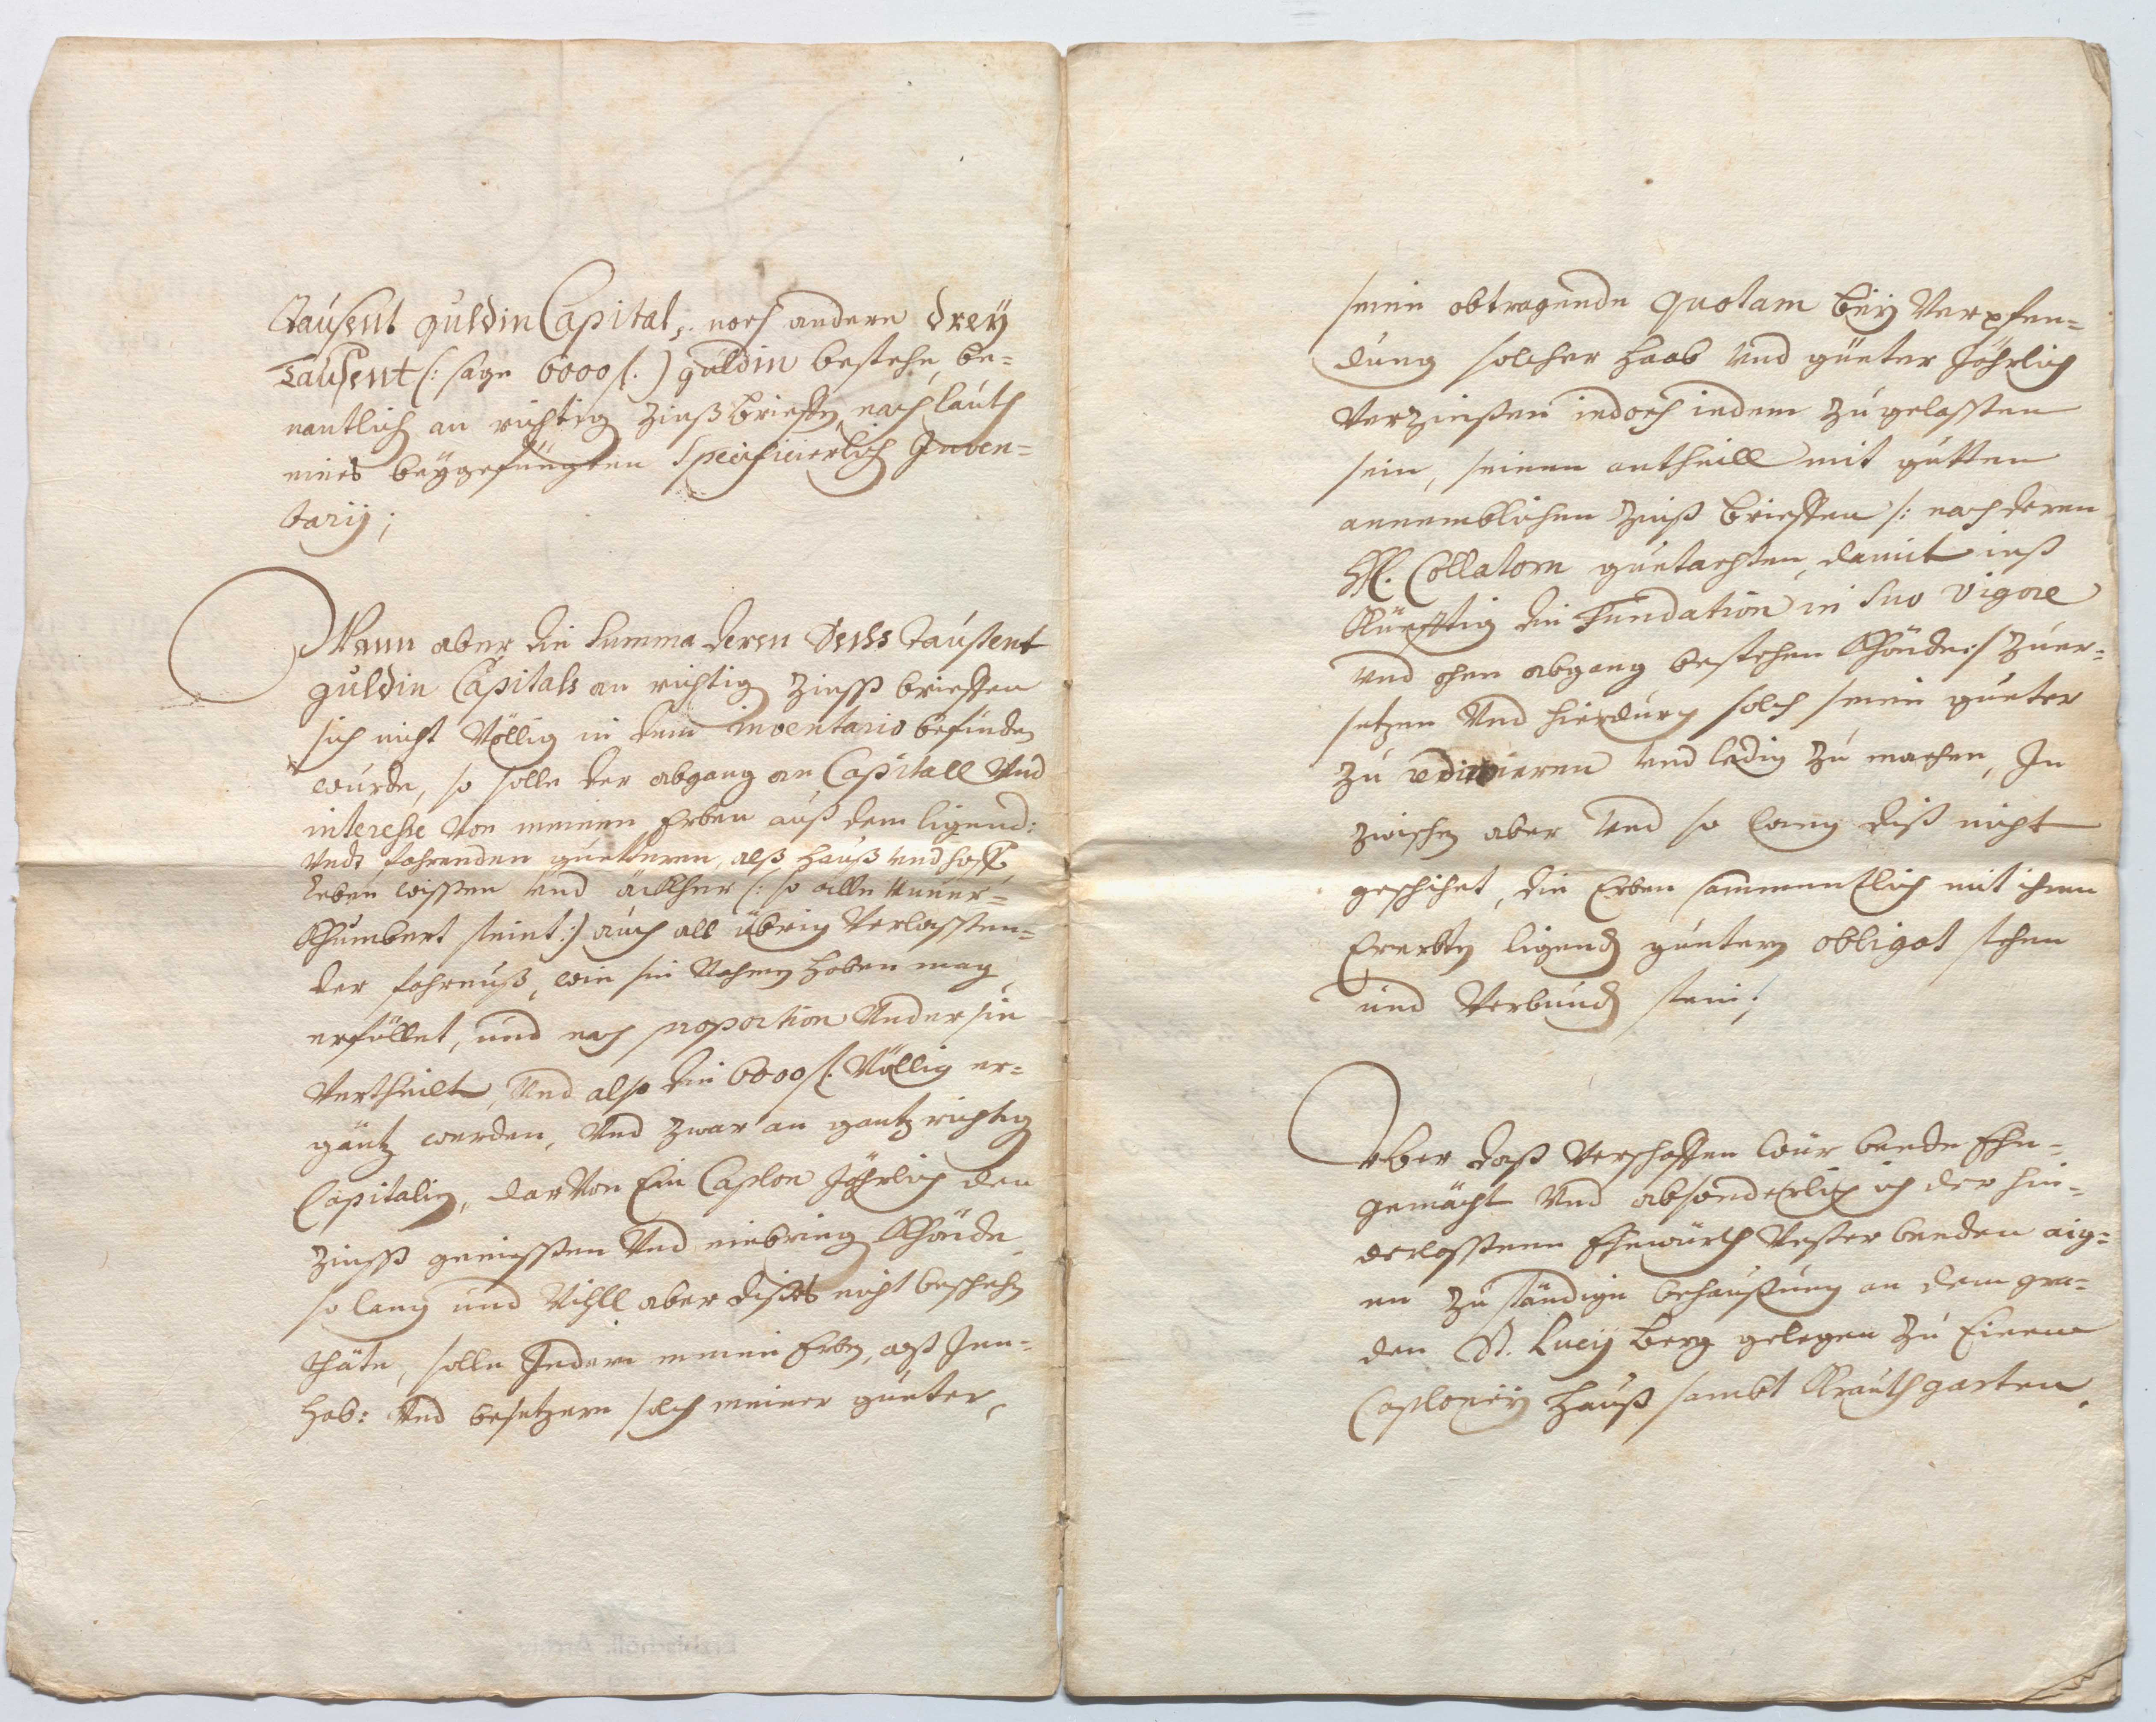 Tausent guldin Capital, noch andere drey
Tausent (: sage 6000 f. ) guldin bestehe, be=
nantlich an richtig Zinßbrieffen, nach lauth
eines beygefüegten Specificierlich Inven=
tarij;
Wann aber die Summa deren Sechs Tausent
guldin Capitals an richtig Zinß brieffen
sich nicht Völlig in dem inventario befinden
wurde, so solle der abgang an Capitall Und
interesse Von meinen Erben auß dem ligend:
Undt fahrenden güetteren, alß hauß und hoff,
Reben wissen und äckher (: so alle Unver=
Khumbert seint :) auch all übrig Verlassen=
der fahrnuß, wie sie Nahmen haben mag
erfüllet, und nach proportion Under sie
Vertheilt, Und also die 6000 f. Völlig er=
gäntz werden, Und zwar an gantz richtig
Capitalien, darVon Ein Caplon Jährlich den
Zinß geniessen Und einbring Khönde,
so lang und Vihll aber dises nicht beschehen
thäte, solle Jedem meine Erben, alß Inn=
hab: Und besetzern solch meiner güeter,
seine obtragende quotam beÿ Verpfen=
dung solcher haab Und güeter Jährlich
Verzinßen iedoch iedem zugelassen
sein, seinen antheill mit gutten
annemblichen Zinß brieffen /: nach deren
HH. Collatorn guetachten, damit ins
Künfftig die Fundation in suo vigore
Und ohne abgang bestehen Khönde :/ zuer=
setzen Und hierdurch solch seine güeter
zu redimieren Und ledig zu machen, In
zwischen aber Und so lang diß nicht
geschihet, die Erben sammentlich mit ihren
Ererbten ligenden güetern obligat stehen
und Verbunden sein;
Uber daß Verschaffen wür beede Ehe=
gemächt Und absonderlich ich der hin=
derlassene Ehewürth Unser beeden aig=
en zuständige behausung an dem gra=
den St. Lucij Berg gelegen zu Einem
Caploney Hauß sambt Krauthgarten.